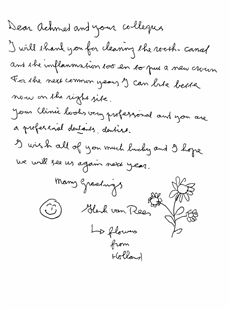 Dear Achmet and your collegues
I will thank you for cleaning the rooth-canal
and the inflammation too en to put a new crown
For the next common years I can bite better
now on the right site.
Your Clinic looks very professional and you are
a profescial dentist.
I wish all of you much lucky and I hope
we will see us again next year.
Many Greetings
Henk van Rees
↳ flowers
from
Holland